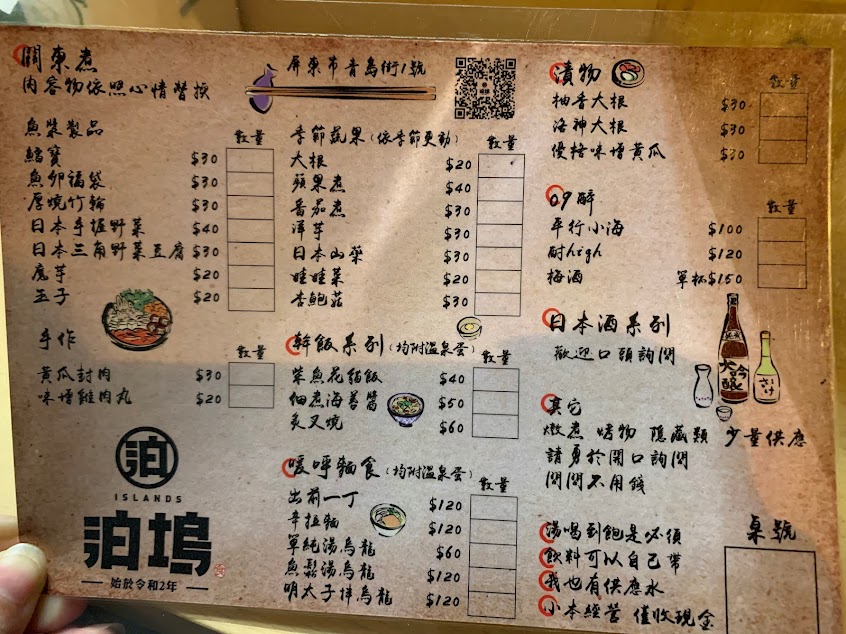 關東煮
內容物依照心情替換
屏東市青島街1號
魚漿製品
數量
鱈寶 $30
魚卵福袋 $30
厚燒竹輪 $30
日本手握野菜 $40
日本三角野菜豆腐 $30
魔芋 $20
玉子 $20
手作
數量
黃瓜封肉 $30
味增雞肉丸 $20
泊
ISLANDS
泊塢
始於令和2年
季節蔬果(依季節更動)
數量
大根 $20
蘋果煮 $40
番茄煮 $30
洋芋 $30
日本山藥 $30
娃娃菜 $20
杏鮑菇 $30
幹飯系列(均附溫泉蛋)
數量
柴魚花貓飯 $40
佃煮海苔醬 $50
炙叉燒 $60
暖呼麵食(均附溫泉蛋)
數量
出前一丁 $120
辛拉麵 $120
單純湯烏龍 $60
魚鬆湯烏龍 $120
明太子拌烏龍 $120
漬物
數量
柚香大根 $30
洛神大根 $30
優格味增黃瓜 $30
09醉
數量
平行小海 $100
酎high $120
梅酒 單杯$150
日本酒系列
歡迎口頭詢問
大吟醸
さけ
其它
燉煮 烤物 隱藏類 少量供應
請勇於開口詢問
問問不用錢
湯喝到飽是必須
飲料可以自己帶
我也有供應水
小本經營 僅收現金
桌號